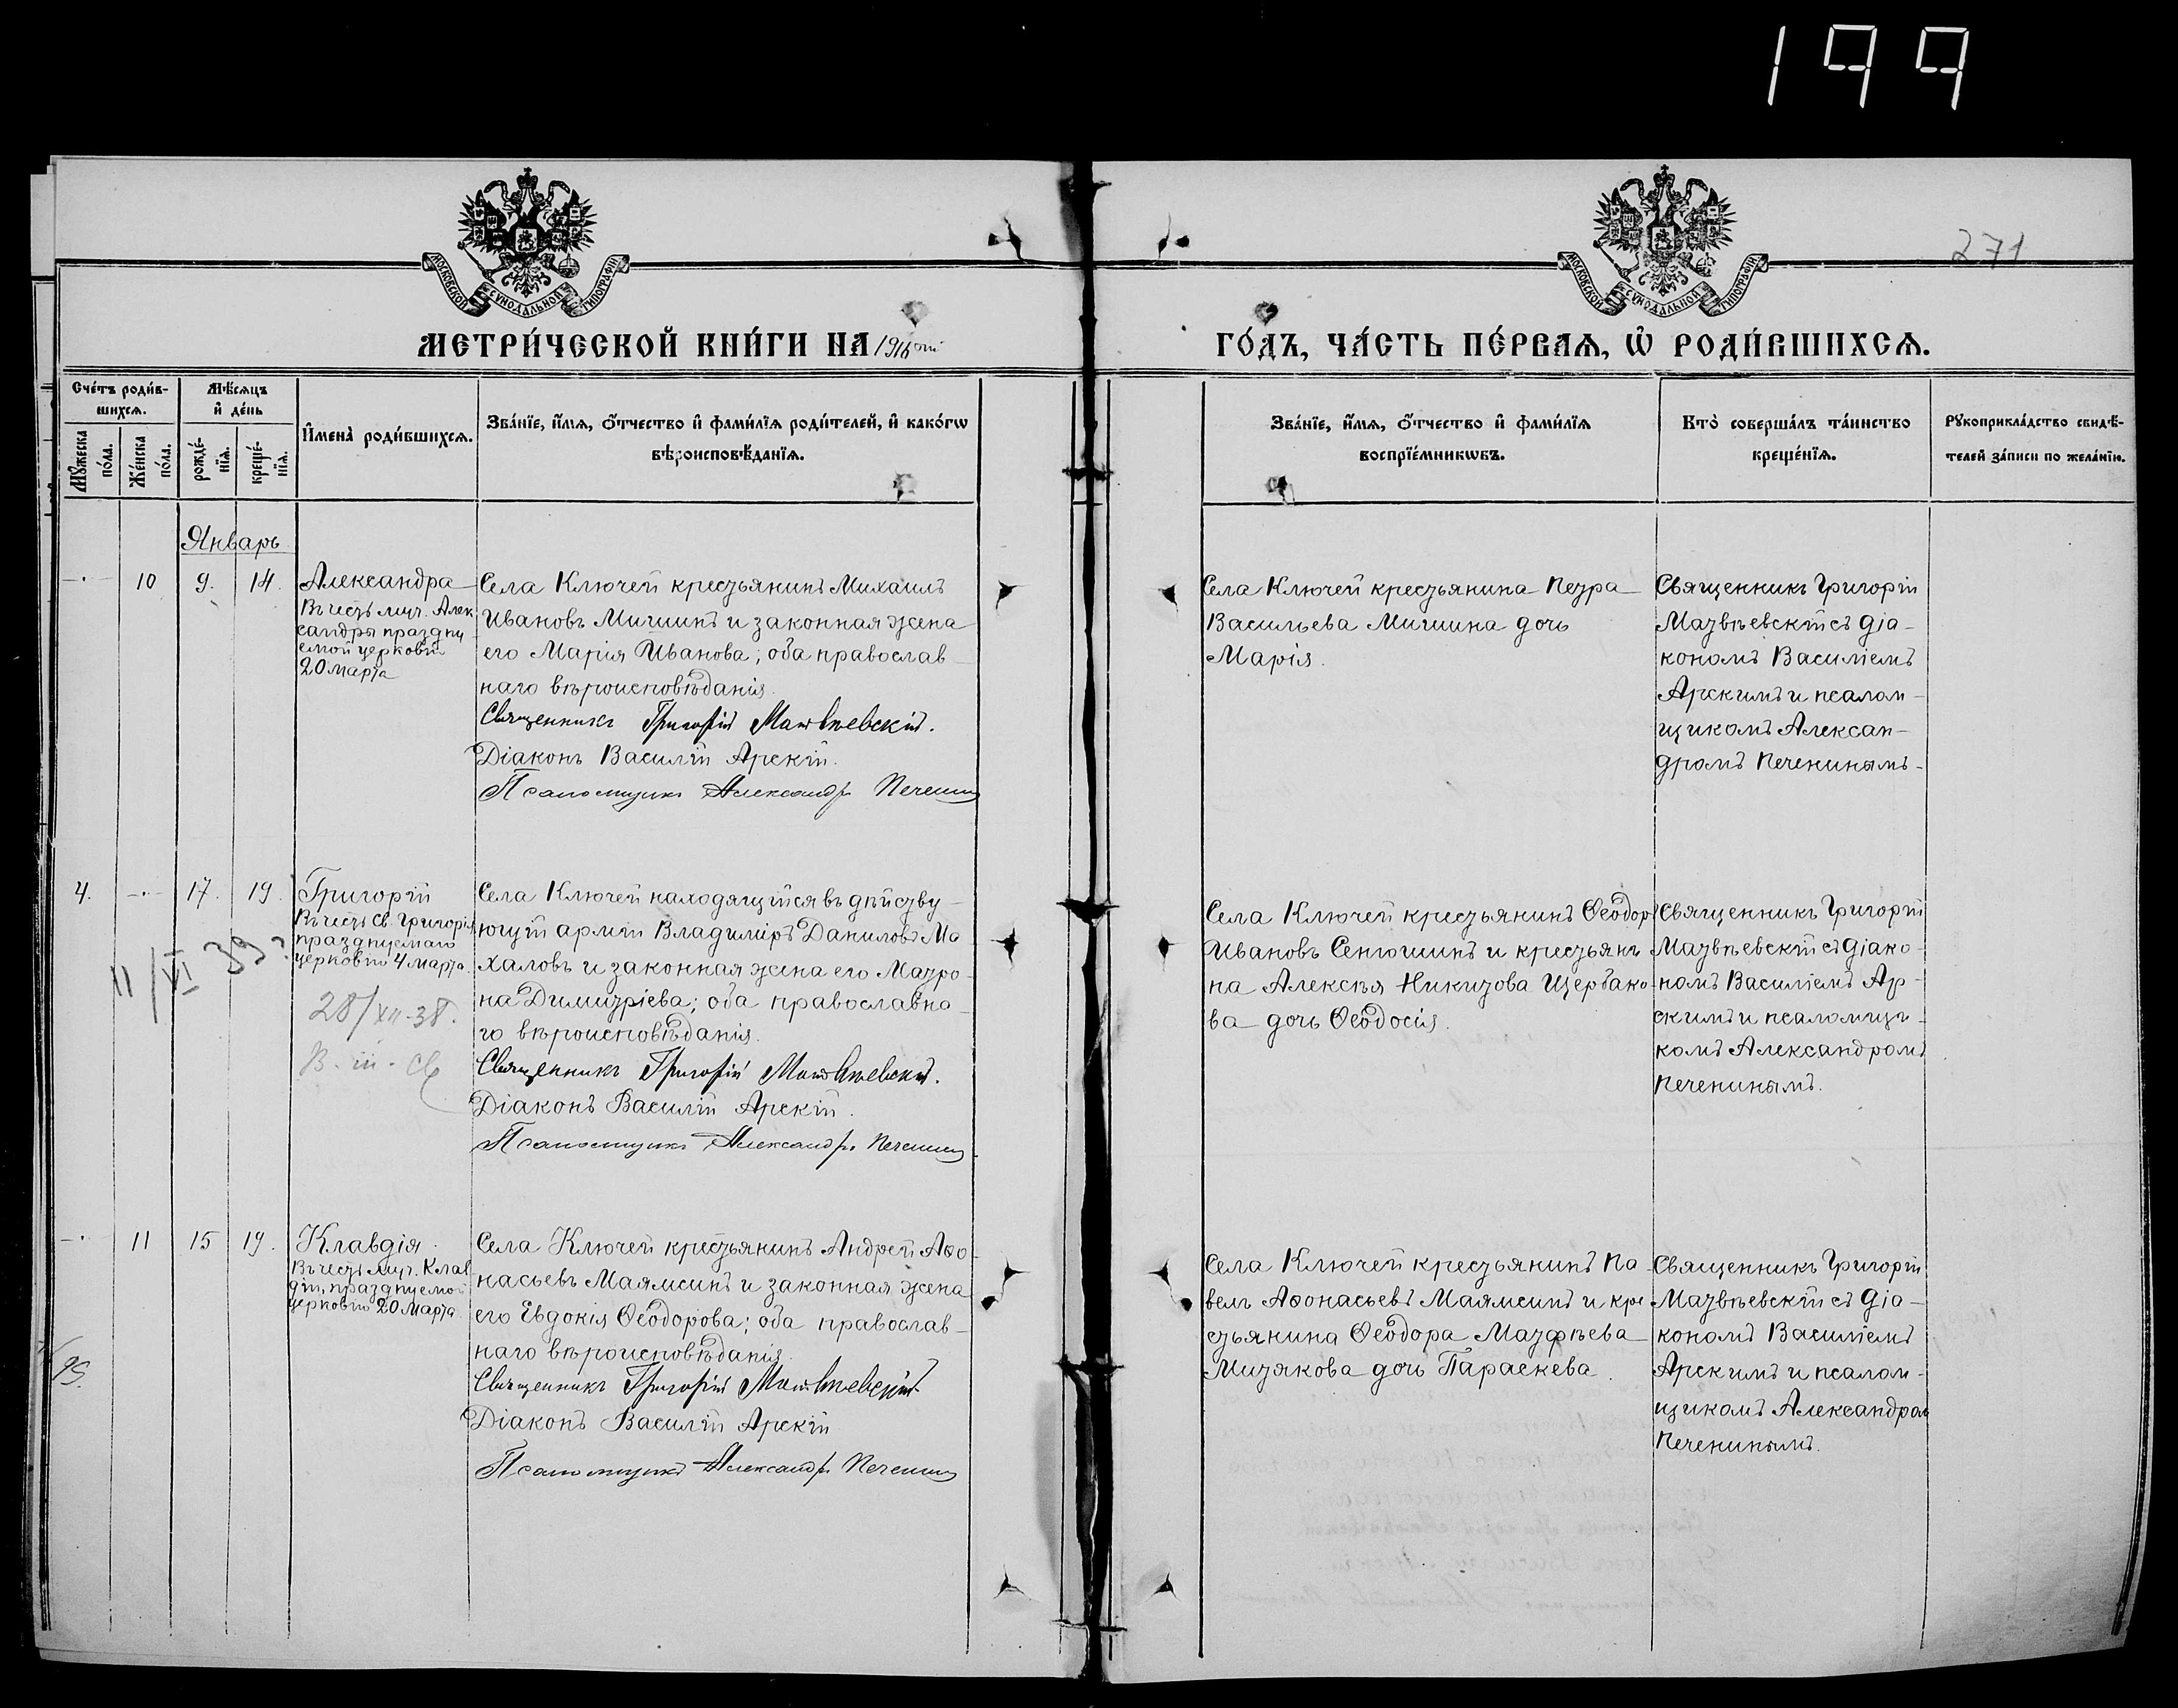 199
271
МОСКОВСКОЙ СѴНОДАЛЬНОЙ ТИПОГРАФІИ
МОСКОВСКОЙ СѴНОДАЛЬНОЙ ТИПОГРАФІИ
МЕТРИ́ЧЕСКОЙ КНИ́ГИ НА 1916 ый
ГО́ДЪ, ЧА́СТЬ ПЕ́РВАѦ, Ѡ҆ РОДИ́ВШИХСѦ.
Сче́тъ роди́в-
шихсѧ.
Мꙋ́жеска
по́ла.
Же́нска
по́ла.
Мѣ́сѧцъ
и҆ де́нь
рожде́-
нїѧ.
креще́-
нїѧ.
И҆мена̀ роди́вшихсѧ.
Зва́нїе, и҆́мѧ, ѻ҆́тчество и҆ фами́лїѧ роди́телей, и҆ како́гѡ
вѣроисповѣ́данїѧ.
Зва́нїе, и҆́мѧ, ѻ҆́тчество и҆ фами́лїѧ
воспрїе́мникѡвъ.
Кто̀ соверша́лъ та́инство
креще́нїѧ.
Рꙋкоприкла́дство свидѣ́-
телей за́писи по жела́нїю.
Январь
— 10 9. 14.
Александра
Въ честь муч. Алек
сандры праздну
емой церковію
20 марта
Села Ключей крестьянинъ Михаилъ
Ивановъ Мишинъ и законная жена
его Марія Иванова; оба православ
наго вѣроисповѣданія.
Священникъ Григорій Матвѣевскій.
Діаконъ Василій Арскій.
Псаломщикъ Александръ Печенинъ
Села Ключей крестьянина Петра
Васильева Мишина дочь
Марія.
Священникъ Григорій
Матвѣевскій съ діа-
кономъ Василіемъ
Арскимъ и псалом-
щикомъ Алексан-
дромъ Печенинымъ.
4. — 17. 19.
Григорій
Въ честь Св. Григорія
празднуемаго
церковію 4 марта.
11/VI 39
28/XII-38.
Села Ключей находящійся въ дѣйству-
ющей арміи Владиміръ Даниловъ Ма
халовъ и законная жена его Матро-
на Димитріева; оба православна-
го вѣроисповѣданія.
Священникъ Григорій Матвѣевскій.
Діаконъ Василій Арскій.
Псаломщикъ Александръ Печенинъ
Села Ключей крестьянинъ Ѳеодоръ
Ивановъ Сенюшинъ и крестьяни
на Алексѣя Никитова Щербако
ва дочь Ѳеодосія.
Священникъ Григорій
Матвѣевскій съ діако-
номъ Василіемъ Ар-
скимъ и псаломщи-
комъ Александромъ
Печенинымъ.
— 11 15 19.
Клавдія.
Въ честь муч. Клав
діи, празднуемой
церковію 20 марта
Села Ключей крестьянинъ Андрей Аѳо-
насьевъ Маямсинъ и законная жена
его Евдокія Ѳеодорова; оба православ-
наго вѣроисповѣданія.
Священникъ Григорій Матвѣевскій.
Діаконъ Василій Арскій
Псаломщикъ Александръ Печенинъ
Села Ключей крестьянинъ Па
велъ Аѳонасьевъ Маямсинъ и кре
стьянина Ѳеодора Матфѣева
Митякова дочь Параскева.
Священникъ Григорій
Матвѣевскій съ діа-
кономъ Василіемъ
Арскимъ и псалом-
щикомъ Александромъ
Печенинымъ.